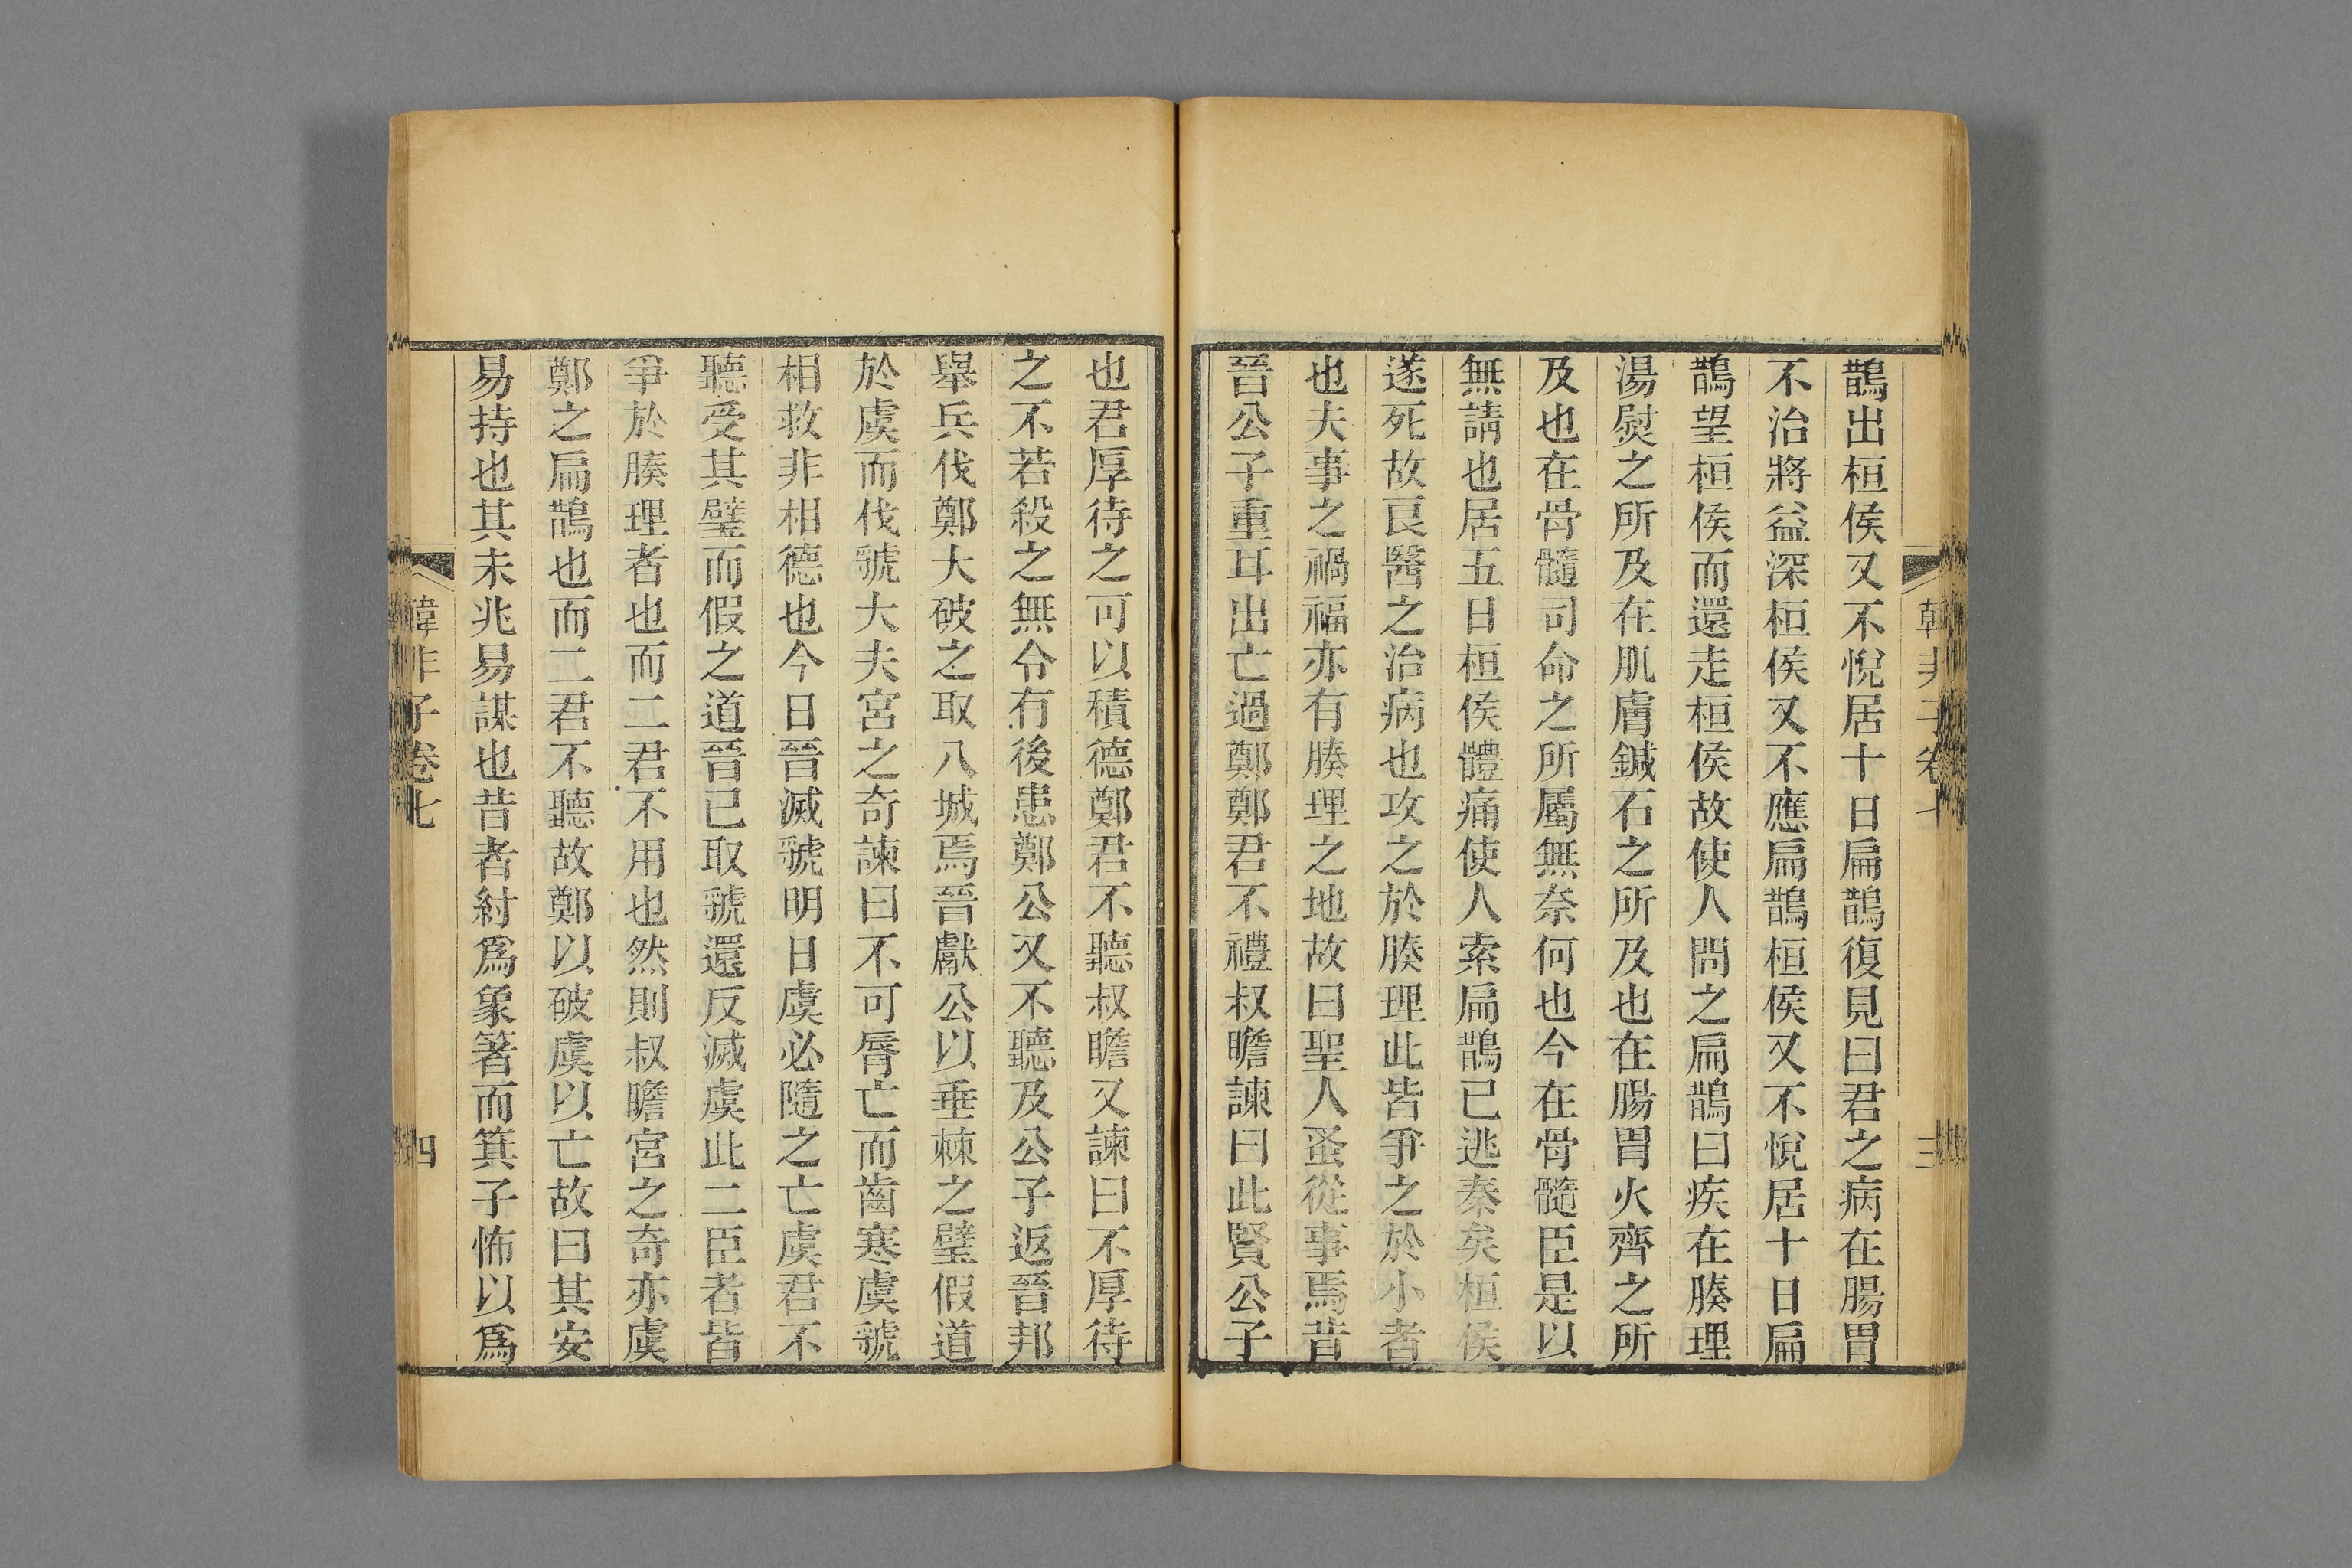 鵲出桓侯又不悅居十日扁鵲復見曰君之病在腸胃
不治將益深桓侯又不應扁鵲桓侯又不悅居十日扁
鵲望桓侯而還走桓侯故使人問之扁鵲曰疾在腠理
湯熨之所及在肌膚鍼石之所及也在腸胃火齊之所
及也在骨髓司命之所屬無奈何也今在骨髓臣是以
無請也居五日桓侯體痛使人索扁鵲已逃秦矣桓侯
遂死故良醫之治病也攻之於腠理此皆爭之於小者
也夫事之禍福亦有腠理之地故曰聖人蚤從事焉昔
晉公子重耳出亡過鄭鄭君不禮叔瞻諫曰此賢公子
韓非子卷七
三
也君厚待之可以積德鄭君不聽叔瞻又諫曰不厚待
之不若殺之無令有後患鄭公又不聽及公子返晉邦
舉兵伐鄭大破之取八城焉晉獻公以垂棘之璧假道
於虞而伐虢大夫宮之奇諫曰不可脣亡而齒寒虞虢
相救非相德也今日晉滅虢明日虞必隨之亡虞君不
聽受其璧而假之道晉已取虢還反滅虞此二臣者皆
爭於腠理者也而二君不用也然則叔瞻宮之奇亦虞
鄭之扁鵲也而二君不聽故鄭以破虞以亡故曰其安
易持也其未兆易謀也昔者紂爲象箸而箕子怖以爲
韓非子卷七
四